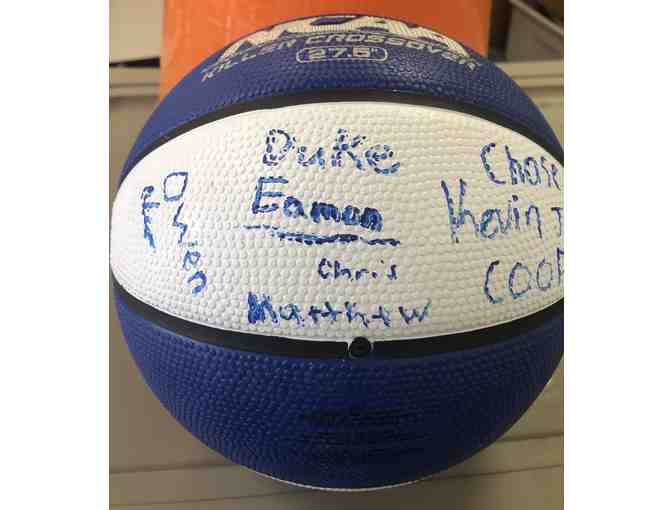 NCAA
KILLER CROSSOVER
27.5"
Duke
Eamon
Chris
Matthew
Owen
Chase
Kevin J
COOP